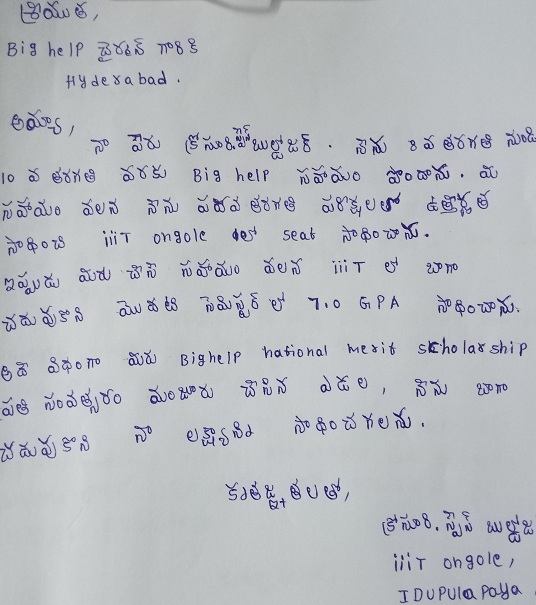 శ్రీయుత,
Big help చైర్మన్ గారికి
Hyderabad.
అయ్యా,
నా పేరు క్రోసూరి. స్టైన్ బుల్జర్. నేను 8 వ తరగతి నుండి
10 వ తరగతి వరకు Big help సహాయం పొందాను. మీ
సహాయం వలన నేను పదవ తరగతి పరీక్షలలో ఉత్తీర్ణత
సాధించి iiiT ongole లో seat సాధించాను.
ఇప్పుడు మీరు చేసే సహాయం వలన iiiT లో బాగా
చదువుకొని మొదటి సెమిస్టర్ లో 7.0 GPA సాధించాను.
అదే విధంగా మీరు Bighelp national merit scholarship
ప్రతి సంవత్సరం మంజూరు చేసిన ఎడల, నేను బాగా
చదువుకొని నా లక్ష్యాన్ని సాధించగలను.
కృతజ్ఞతలతో,
క్రోసూరి.
iiiT ongole,
IDUPULAPAYA